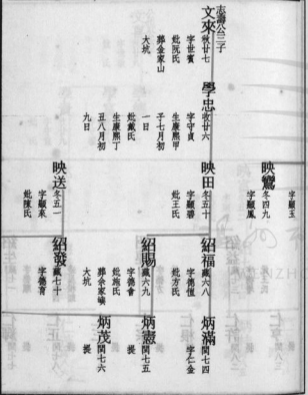 志濤公三子
文來 秋廿七
字世賓
妣阮氏
葬金家山
大坑
學忠 收廿六
字守貞
生康熙甲
子七月初
一日
妣戴氏
生康熙丁
丑八月初
九日
字顯玉
映鸞 冬四九
字顯鳳
映田 冬五十
字顯碧
妣王氏
映送 冬五一
字顯來
妣陳氏
紹福 藏六八
字德恆
妣方氏
紹賜 藏六九
字德會
妣施氏
葬余家嶼
大坑
紹發 藏七十
字德育
炳滿 閏七四
字仁金
炳憲 閏七五
提
炳茂 閏七六
提